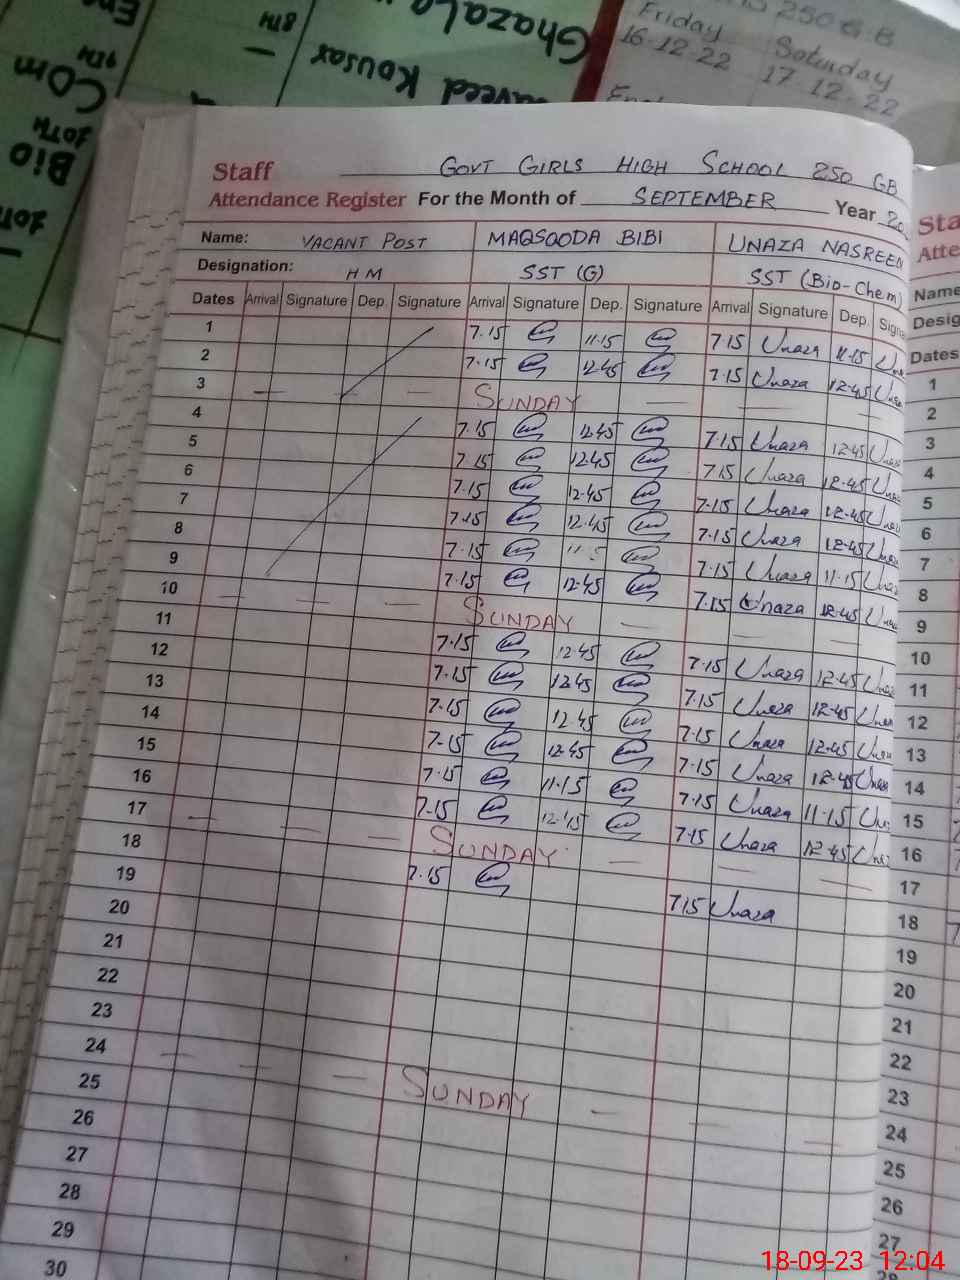 Ghazala
Kousar
8TH
9TH
COm
10TH
Bio
250 G.B
Friday Saturday
16-12-22 17-12-22
Staff GOVT GIRLS HIGH SCHOOL 250 GB
Attendance Register For the Month of SEPTEMBER Year
Name: VACANT POST MAQSOODA BIBI UNAZA NASREEN
Designation: HM SST (G) SST (Bio-Chem)
Dates Arrival Signature Dep. Signature Arrival Signature Dep. Signature Arrival Signature Dep.
1 7.15 11.15 7.15 Unaza 11.15
2 7.15 12.45 7.15 Unaza 12.45
3 — — SUNDAY — — —
4 7.15 12.45 7.15 Unaza 12.45
5 7.15 12.45 7.15 Unaza 12.45
6 7.15 12.45 7.15 Unaza 12.45
7 7.15 12.45 7.15 Unaza 12.45
8 7.15 7.15 Unaza 11.15
9 7.15 12.45 7.15 Unaza 12.45
10 — — — SUNDAY — — —
11 7.15 12.45 7.15 Unaza 12.45
12 7.15 12.45 7.15 Unaza 12.45
13 7.15 12.45 7.15 Unaza 12.45
14 7.15 12.45 7.15 Unaza 12.45
15 7.15 11.15 7.15 Unaza 11.15
16 7.15 12.45 7.15 Unaza 12.45
17 — — — SUNDAY — — —
18 7.15 7.15 Unaza
19
20
21
22
23
24 — — — SUNDAY — — —
25
26
27
28
29
30
Name
Dates
1
2
3
4
5
6
7
8
9
10
11
12
13
14
15
16
17
18
19
20
21
22
23
24
25
26
27
18-09-23 12:04